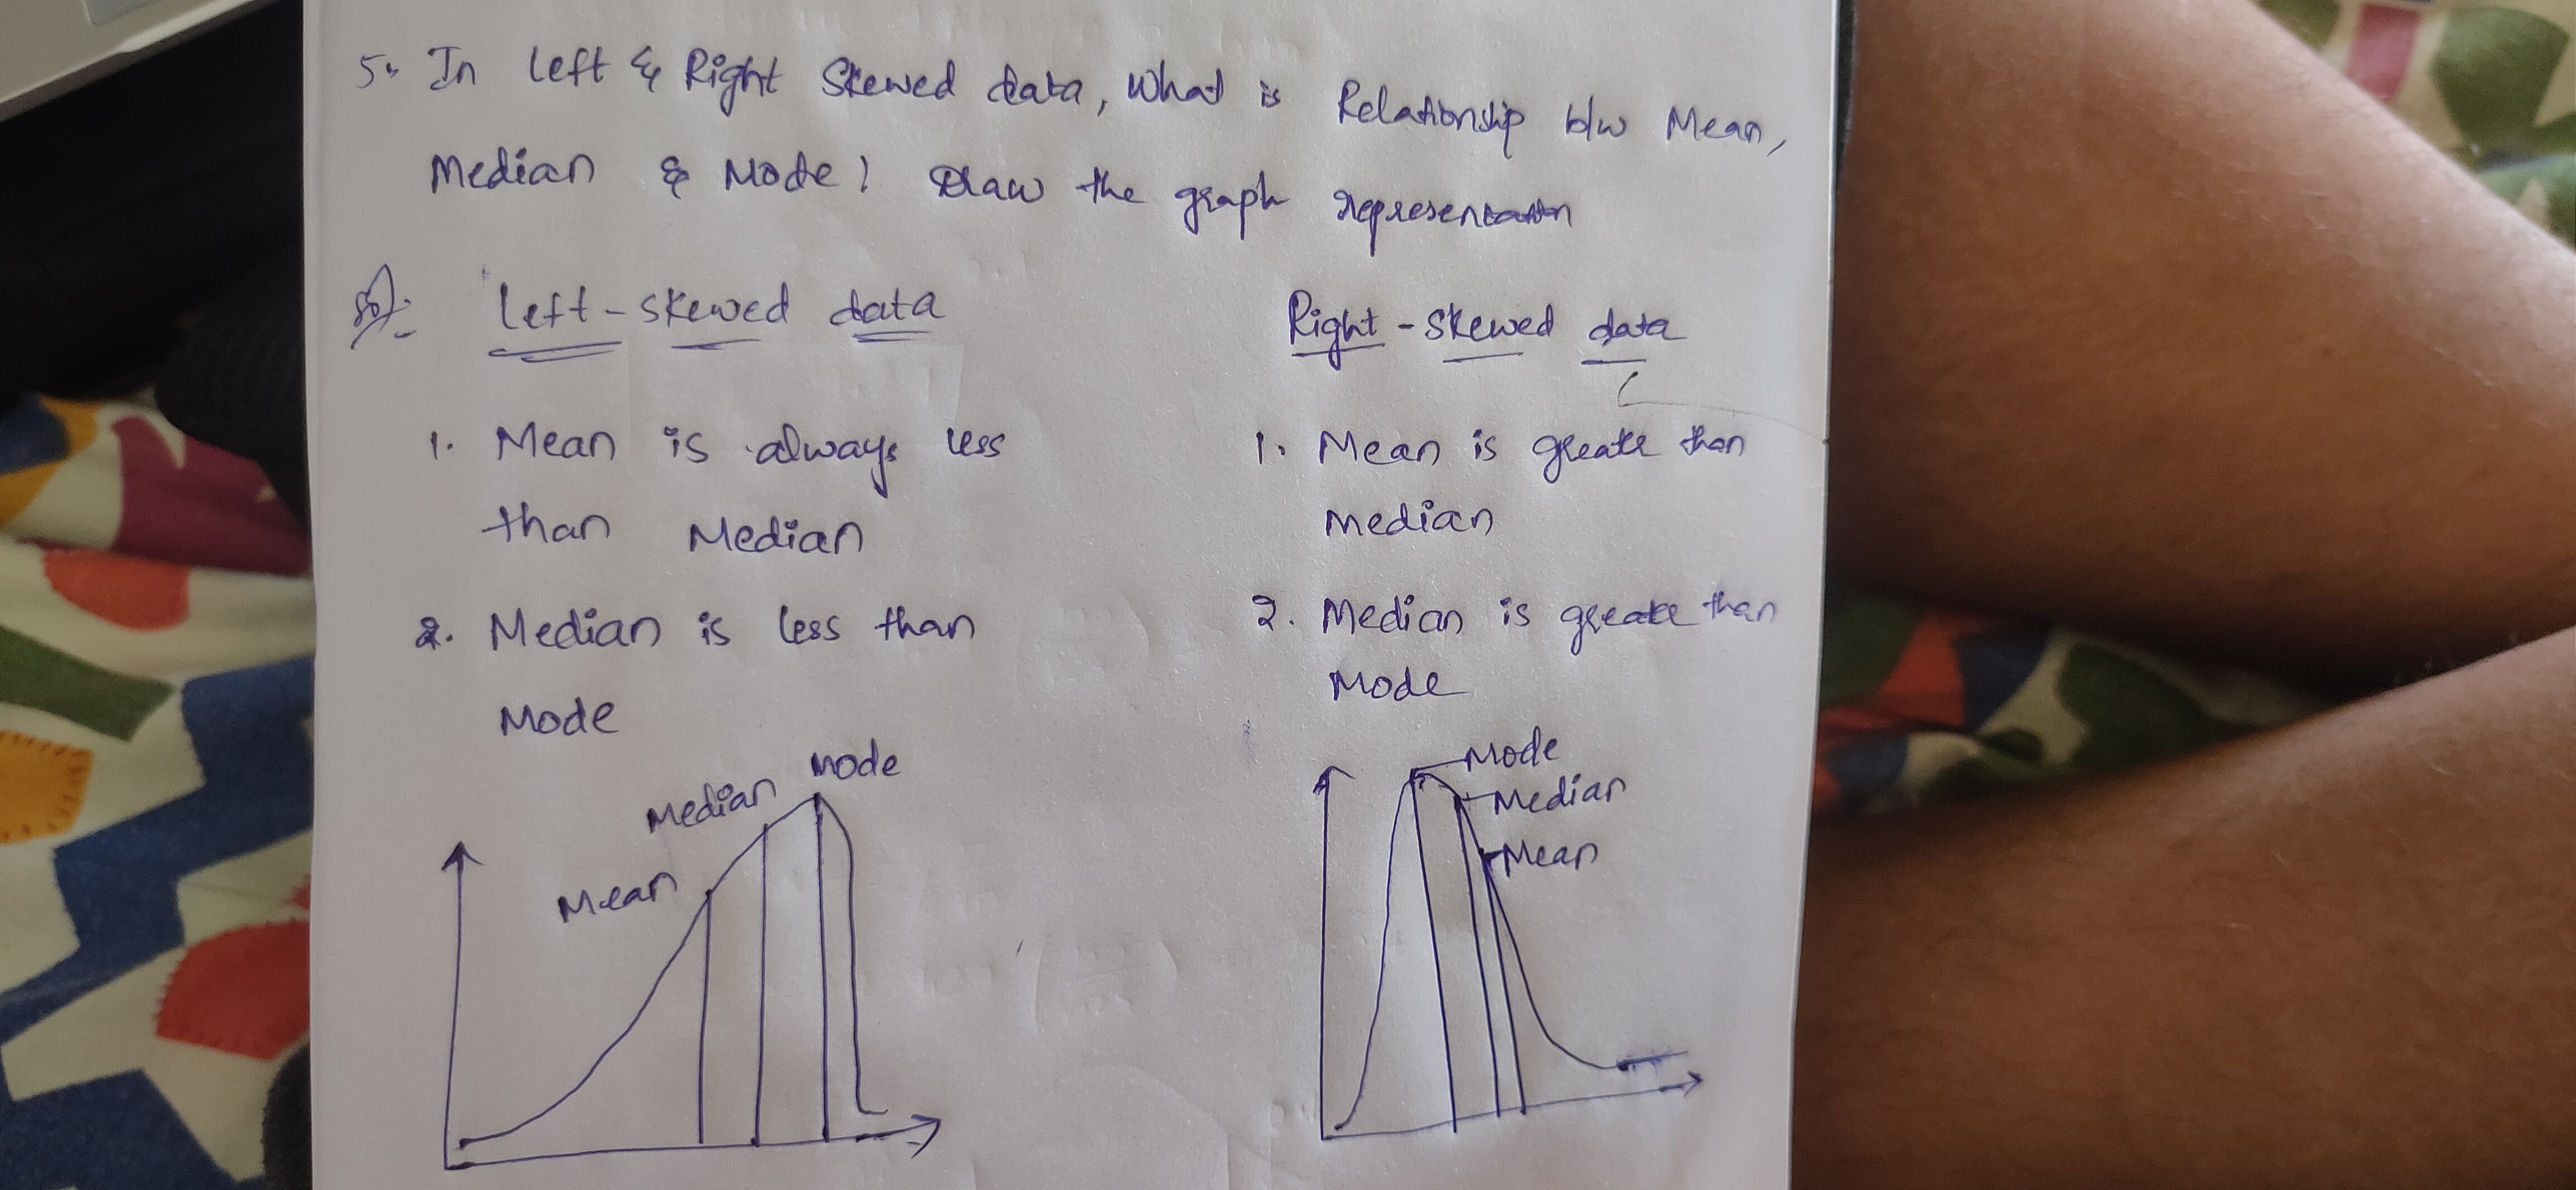 5. In left & Right Skewed data, What is Relationship b/w Mean,
Median & Mode? Draw the graph representation
Sol:-
Left-skewed data
1. Mean is always less
than Median
2. Median is less than
Mode
Mode
Median
Mean
Right-skewed data
1. Mean is greate than
Median
2. Median is greate than
Mode
Mode
Median
Mean